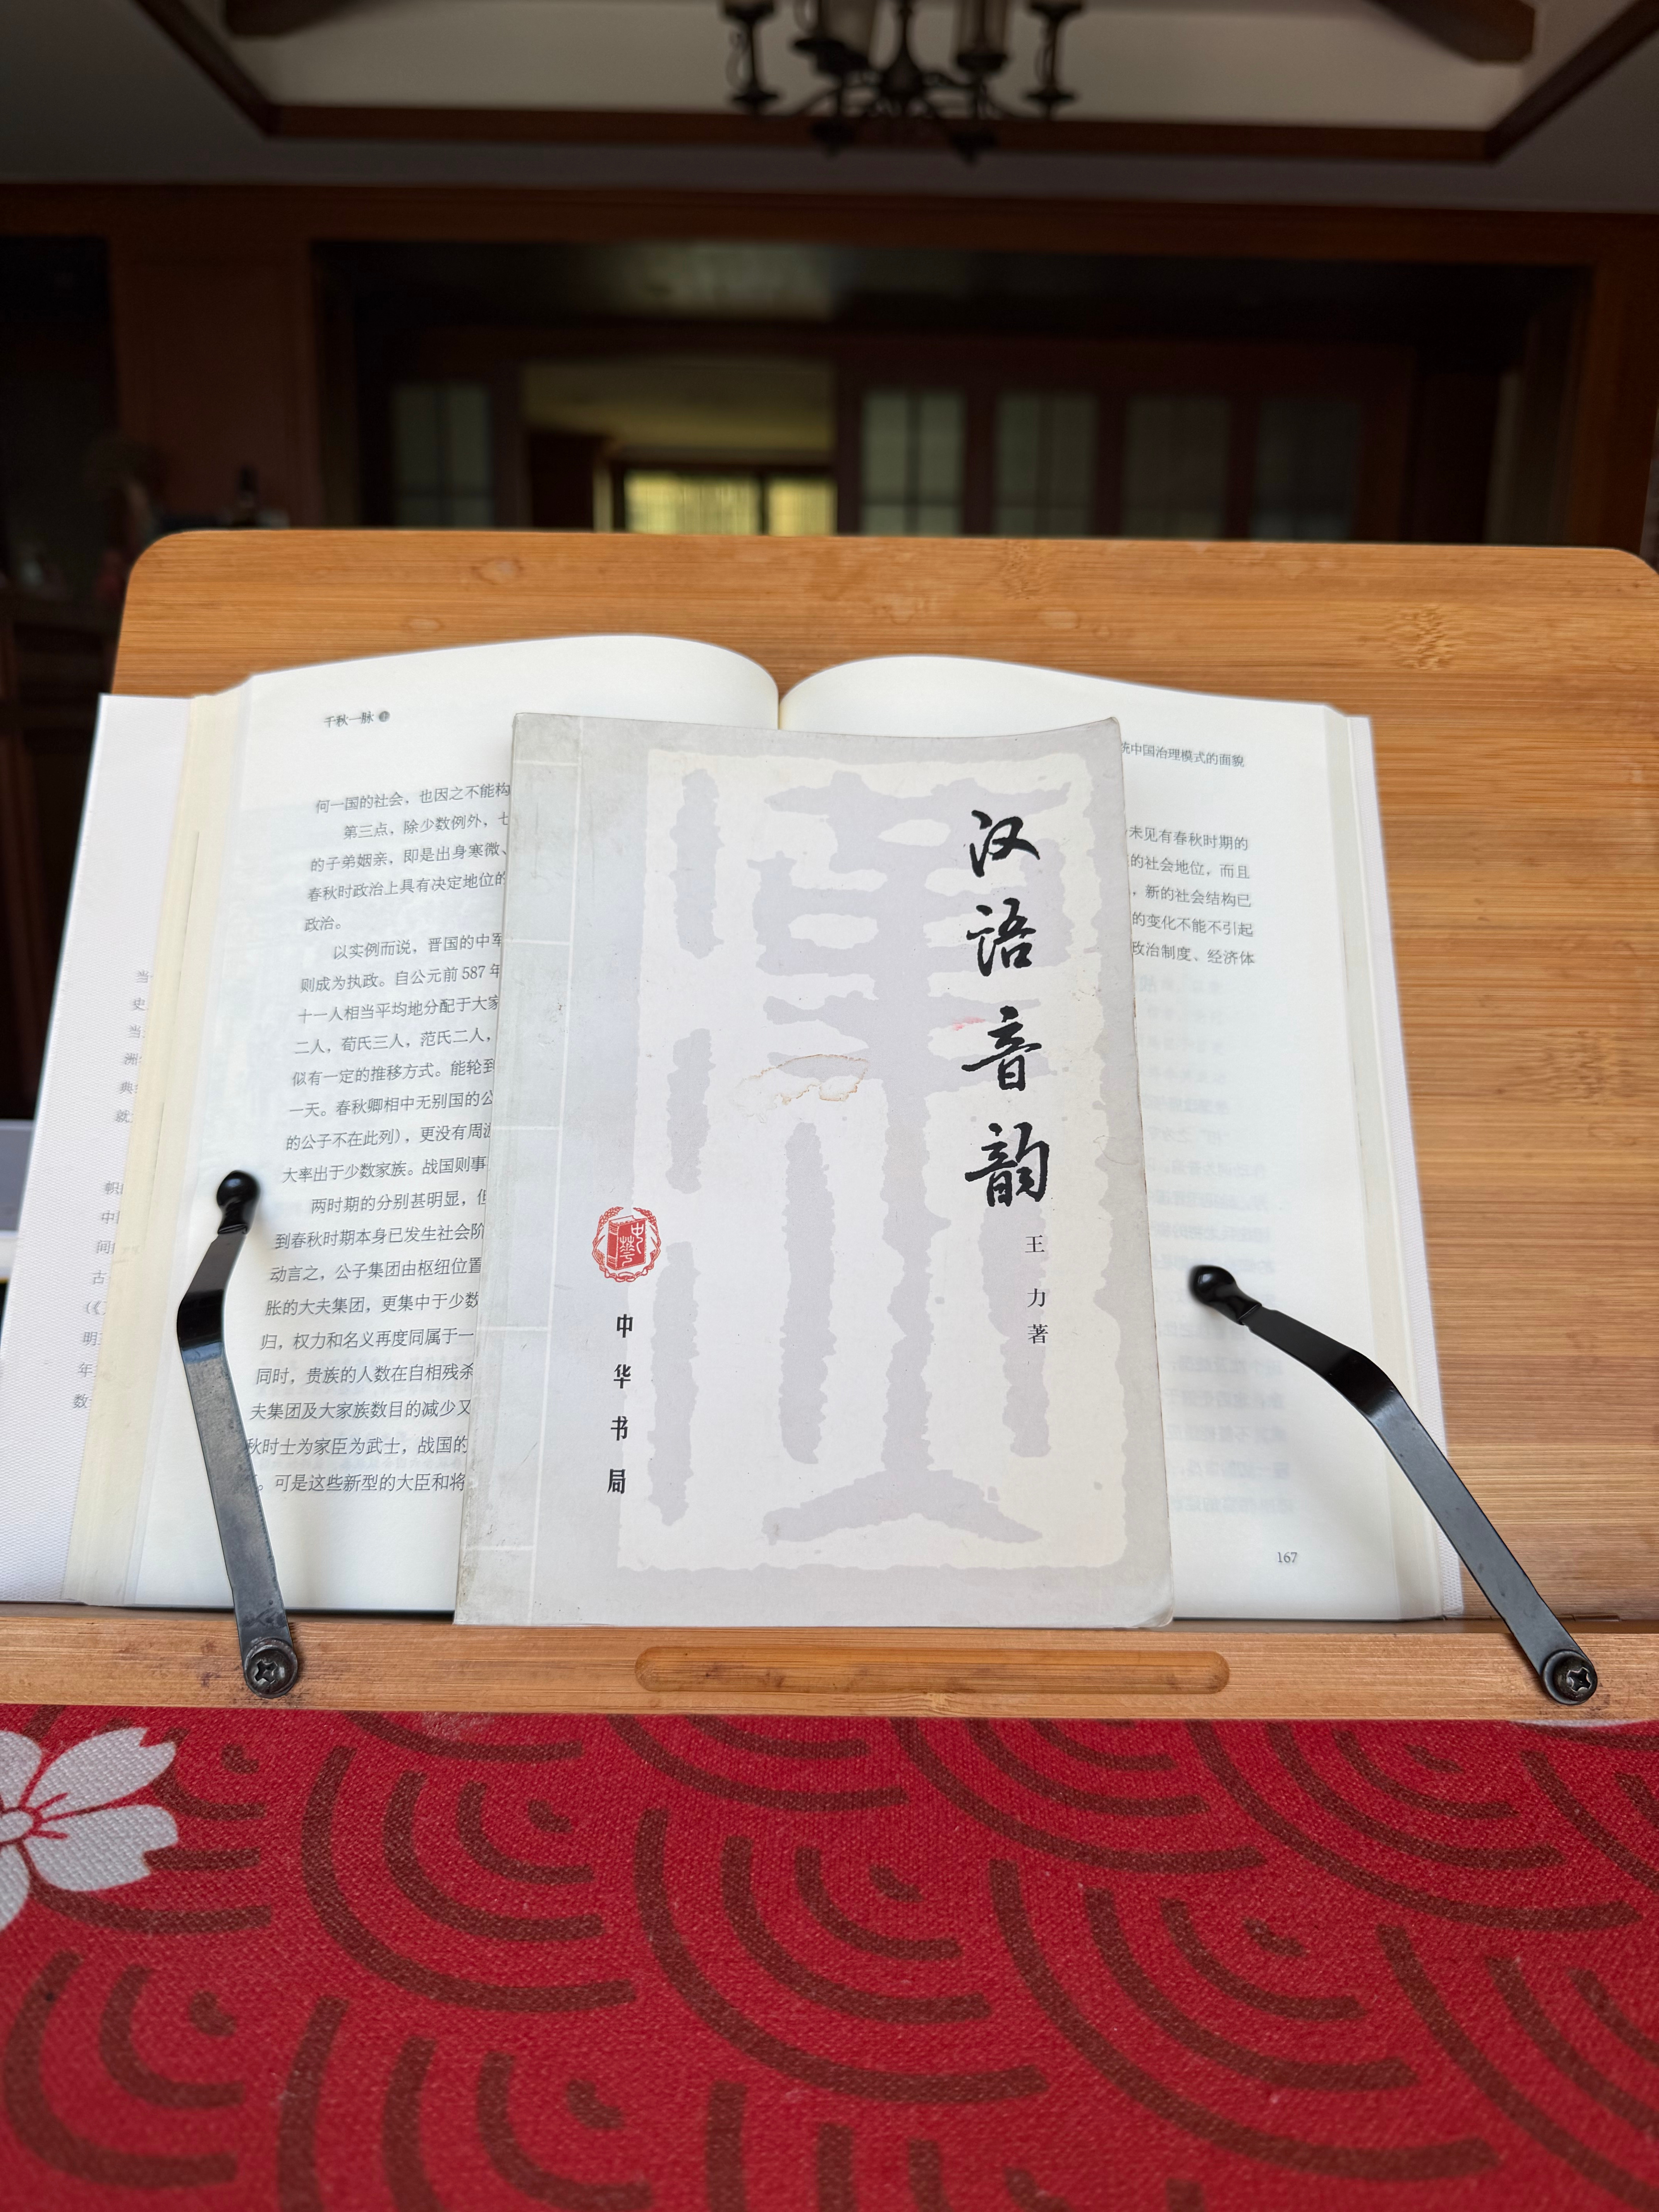 千秋一脉
何一国的社会，也因之不能构
第三点，除少数例外，七
的子弟姻亲，即是出身寒微、
春秋时政治上具有决定地位的
政治。
以实例而说，晋国的中军
则成为执政。自公元前 587 年
十一人相当平均地分配于大家
二人，荀氏三人，范氏二人，
似有一定的推移方式。能轮到
一天。春秋卿相中无别国的公
的公子不在此列），更没有周游
大率出于少数家族。战国则事
两时期的分别甚明显，但
到春秋时期本身已发生社会阶
动言之，公子集团由枢纽位置
胀的大夫集团，更集中于少数
归，权力和名义再度同属于一
同时，贵族的人数在自相残杀
夫集团及大家族数目的减少又
秋时士为家臣为武士，战国的
。可是这些新型的大臣和将
汉语音韵
王力著
中華
中华书局
统中国治理模式的面貌
未见有春秋时期的
的社会地位，而且
，新的社会结构已
的变化不能不引起
政治制度、经济体
167
当
史
当
洲
典
就
中
间
古
明
年
数